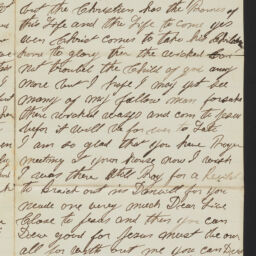 but the Christian has the Promes of
this Life and the Life to come yes
when Christ comes to take his Children
home to glory then the wicked
Not trouble the Child of god any
more but I hope I may yet see
many of my fallow man forsake
their wicked ways and com to Jesus
befor it will be for ever to Late
I am so glad that you have Prayer
meeting at your house now I wish
I was there Will Pray for a
to Brack out in for you
neede one very much Dear
Close to Jesus and then you can
Dew good for Jesus must be our
all for with out me you can Dew